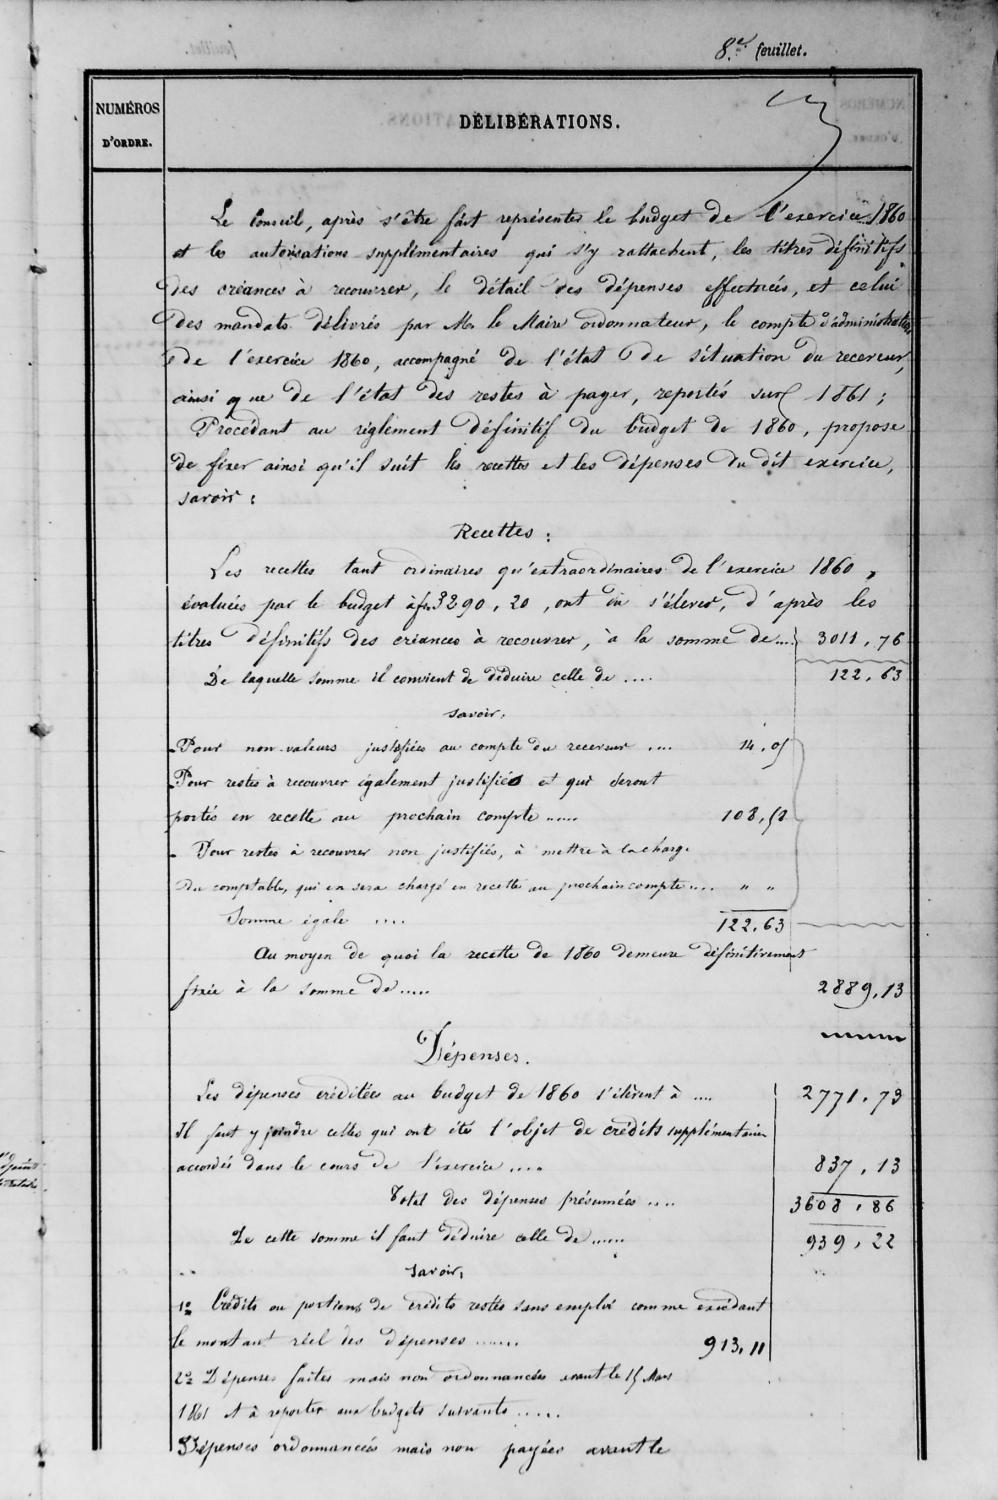 8.e feuillet.
NUMÉROS
D'ORDRE.
DÉLIBÉRATIONS.
Le Conseil, après s'être fait représenter le budget de l'exercice 1860
et les autorisations supplémentaires qui s'y rattachent, les titres définitifs
des créances à recouvrer, le détail des dépenses effectuées, et celui
des mandats délivrés par Mr le Maire ordonnateur, le compte d'administration
de l'exercice 1860, accompagné de l'état de situation du receveur,
ainsi que de l'état des restes à payer, reportés sur 1861;
Procédant au règlement définitif du budget de 1860, propose
de fixer ainsi qu'il suit les recettes et les dépenses du dit exercice,
savoir:
Recettes:
Les recettes tant ordinaires qu'extraordinaires de l'exercice 1860,
évaluées par le budget à fr. 3290,20, ont dû s'élever, d'après les
titres définitifs des créances à recouvrer, à la somme de.... 3011,76
De laquelle somme il convient de déduire celle de .... 122,63
savoir,
Pour non-valeurs justifiées au compte du receveur .... 14,05
Pour restes à recouvrer également justifiés et qui seront
portés en recette au prochain compte ..... 108,58
- Pour restes à recouvrer non justifiés, à mettre à la charge
du comptable, qui en sera chargé en recette au prochain compte .... " "
Somme égale .... 122,63
Au moyen de quoi la recette de 1860 demeure définitivement
fixée à la somme de ..... 2889,13
Dépenses.
Les dépenses créditées au budget de 1860 s'élèvent à .... 2771,73
Il faut y joindre celles qui ont été l'objet de crédits supplémentaires
accordés dans le cours de l'exercice .... 837,13
Total des dépenses présumées .... 3608,86
De cette somme il faut déduire celle de ...... 939,22
savoir,
1o Crédits ou portions de crédits restés sans emploi comme excédant
le montant réel des dépenses ...... 913,11
2o Dépenses faites mais non ordonnancées avant le 15 Mars
1861 et à reporter aux budgets suivants .....
3o Dépenses ordonnancées mais non payées avant le